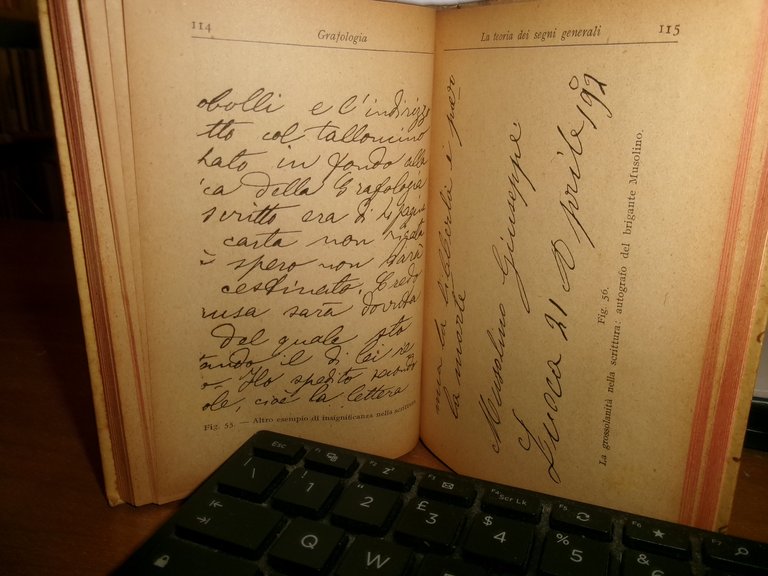 114
Grafologia
obolli e l'indirizz
tto col talloncino
hato in fondo alla
ca della Grafologia
scritto era di 4 pagin
carta non rigata
è spero non sarà
cestinato. Credo
rusa sarà dovuta
del quale sto
ando il di lei re
Ho spedito
ole, cioè la lettera
Fig. 55. — Altro esempio di insignificanza nella scrittura.
La teoria dei segni generali
115
ma la libertà è
la morte
Musolino Giuseppe
Lucca 21 Aprile 192
Fig. 56.
La grossolanità nella scrittura: autografo del brigante Musolino.
Esc
F1
F2
F3
F4
Scr Lk
F5
F6
\
!
1
"
2
£
3
$
4
%
5
6
Q
W
E